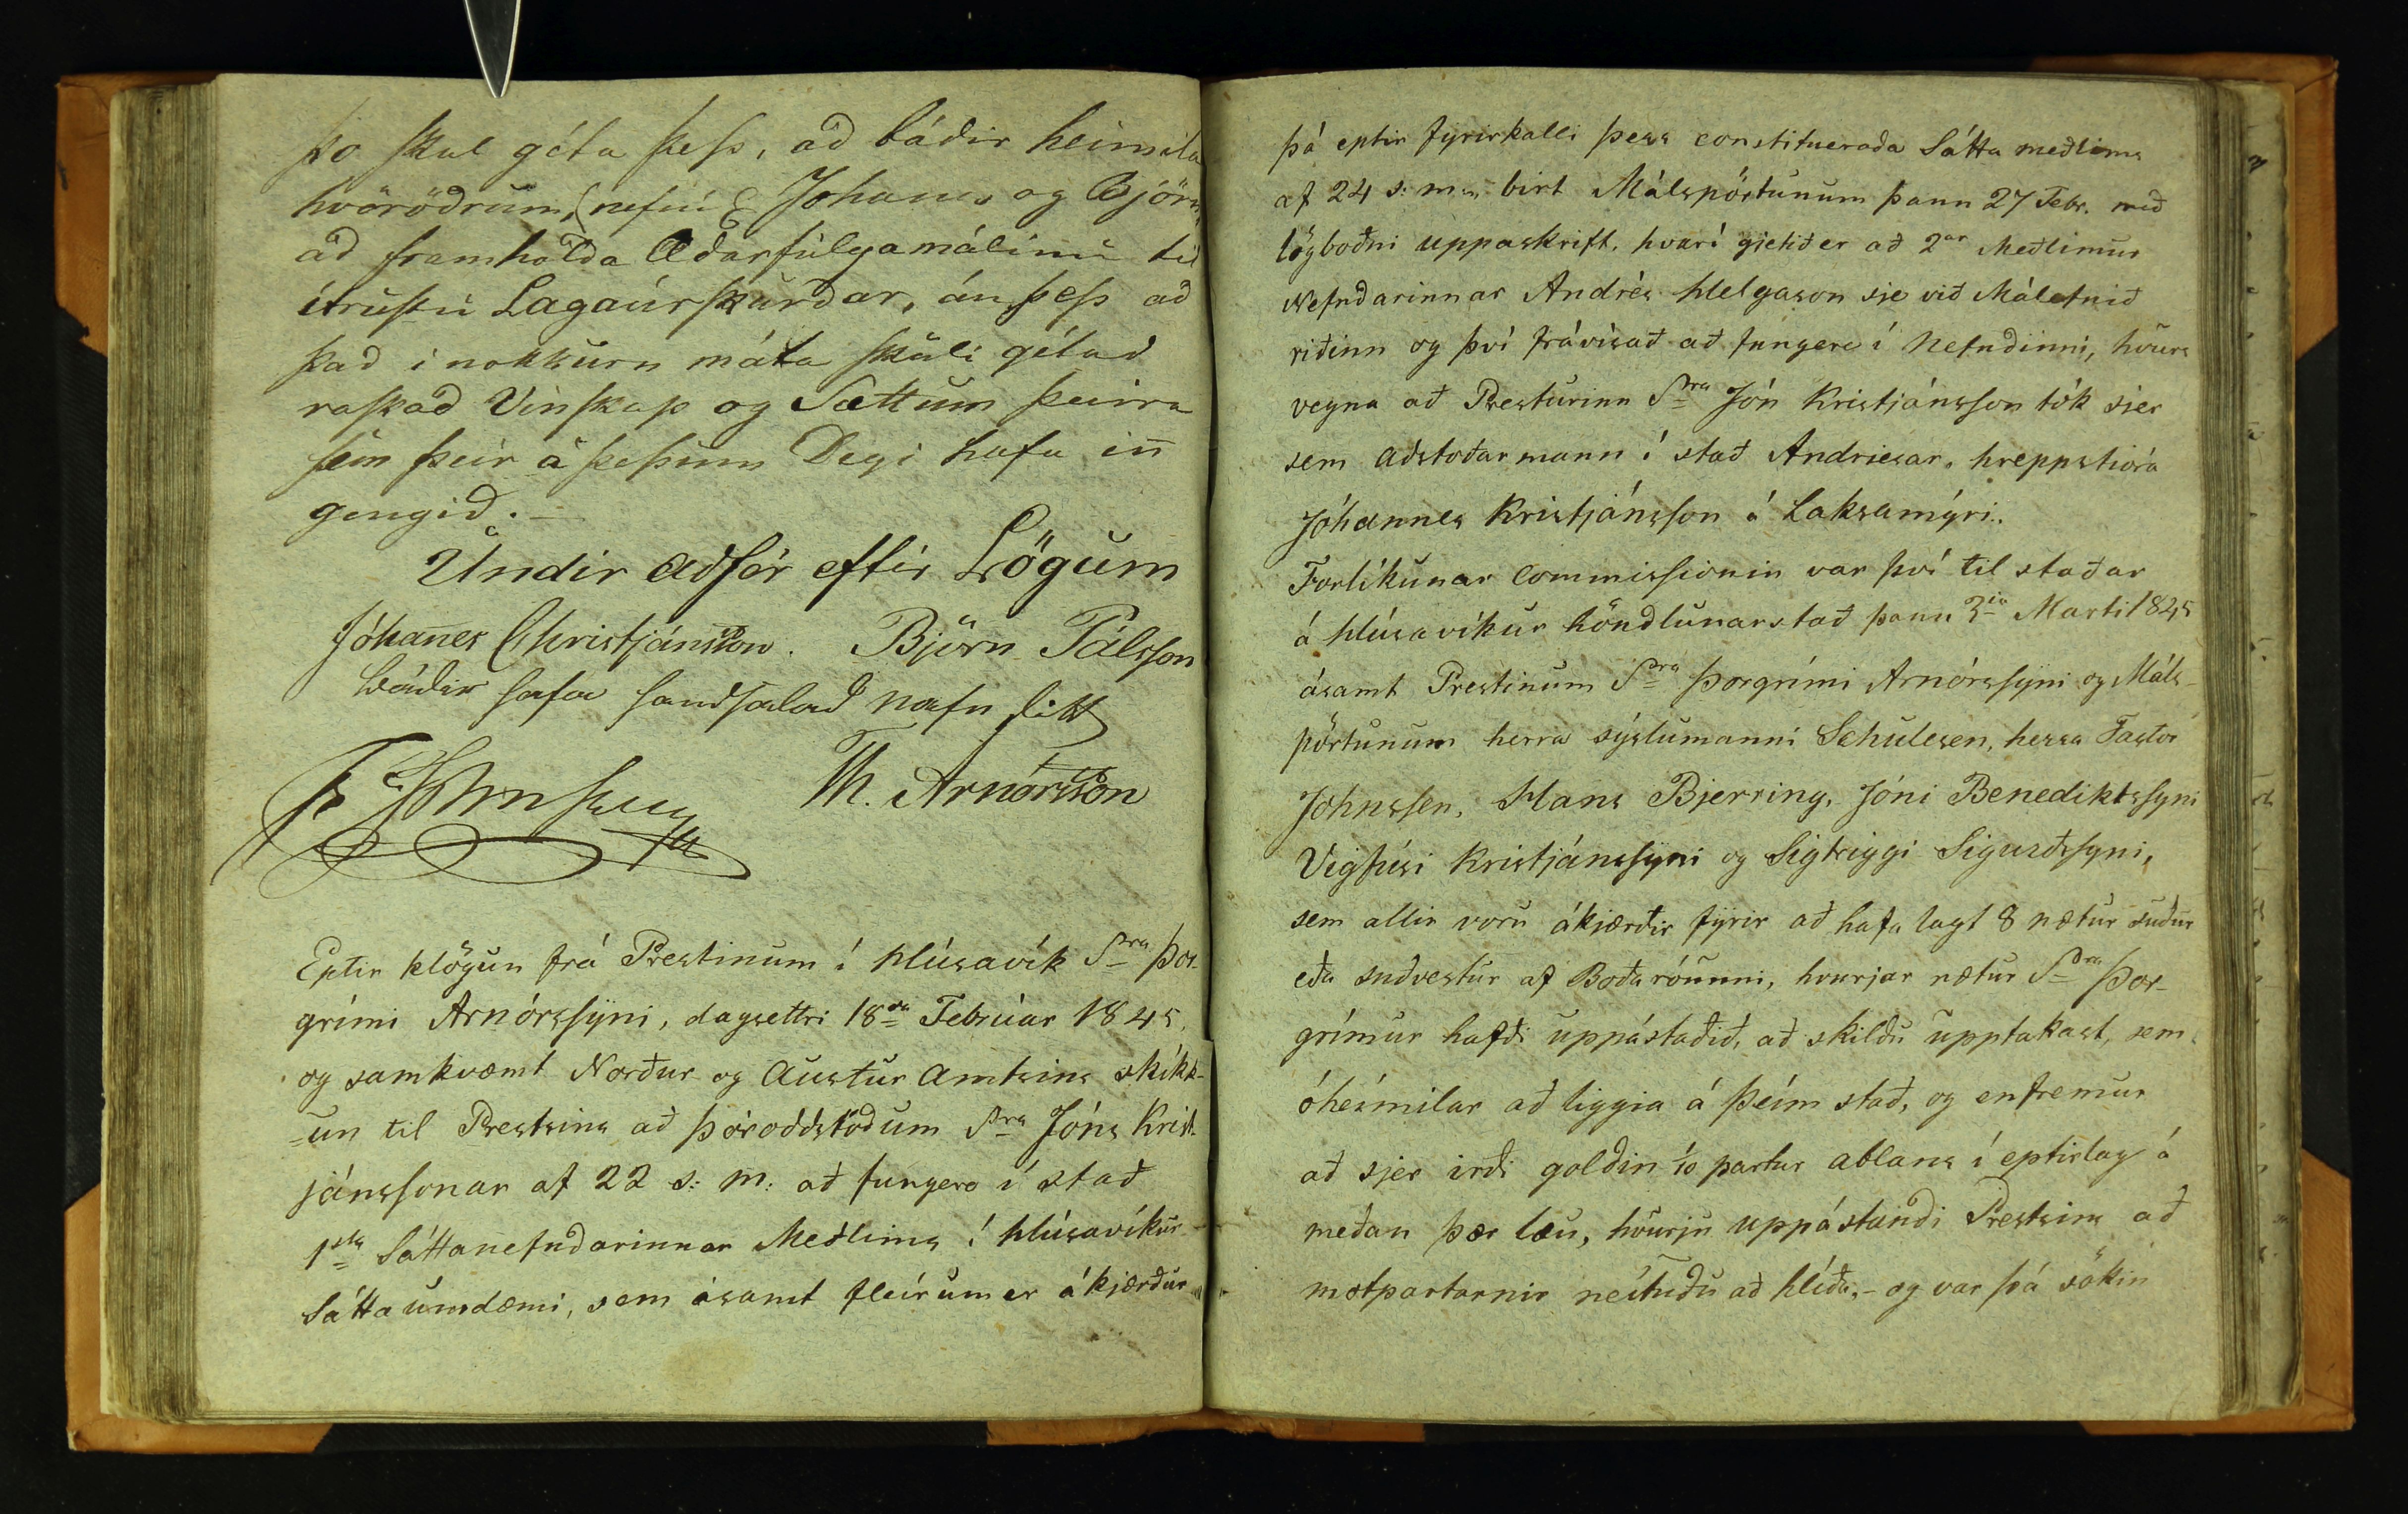 þo skal géta þess, ad bádir heimila
hvöröðrum, (nefnil Johanes og Björn,
ad framhalda Ædarfulgamálinu til
itrustu Lagaúrskurdar, án þess ad
þad i nokkurn máta skuli gétad
raskad Vinskap og Sættum þeirra
sem þeir á þessum Degi hafa in̄
gengid. —
Undir adför eftir Lögum
Jóhan̄es Christjánsson. Björn Pálsson
bádir hafa handsalad nafn sitt
Th. Arnórsson
Eptir klögun frá Prestinum í Húsavík Sra Þor-
grími Arnórssÿni, dagsettri 18da Febrúar 1845,
og samkvæmt Norður og Austur Amtsins skikk-
-un til Prestsins að Þóroddstöðum Sra Jóns Krist-
jánssonar af 22 s: m: að fungera í stað
1sta Sáttanefndarinnar Meðlims í Húsavíkur
Sátta umdæmi, sem ásamt fleírum er ákjærður
þá eptir fÿrirkalli þess constitueraða Sátta meðlims
af 24 s: m. birt Málspörtunum þann 27 Febr. með
lögboðni uppáskrift, hvarí gjetið er að 2ar Meðlimur
Nefndarinnar Andrés Helgason sje við Málefnið
riðinn og því frávísað að fungera í Nefndinni, hvurs
vegna að Presturinn Sra Jón Kristjánsson tók sjer
sem aðstoðarmann í stað Andriesar, hreppstióra
Jóhannes Kristjánsson á Laksamýri.
Forlíkunar Commissionin var því til staðar
á Húsavíkur höndlunarstað þann 3ia Marti 1845
ásamt Prestinum Sra Þorgrími Arnórssÿni og Máls-
pörtunum herra sýslumanni Schulesen, herra Factor
Johnssen, Hans Bjerring, Jóni Benediktssÿni
Vigfúsi Kristjánssÿni og Sigtriggi Sigurðssyni,
sem allir voru ákjærðir fÿrir að hafa lagt 8 nætur suður
eða suðvestur af Boðaróunni, hvurjar nætur Sra Þor-
grímur hafði uppástaðið, að skildu upptakast, sem
óheimilar að liggia á þeím stað, og enfremur
að sjer irði goldin 1/10 partur ablans í eptirlag á
meðan þær læu, hvurju uppástandi Prestsins að
mótpartarnir neítuðu að hlíða, - og var þá sökin